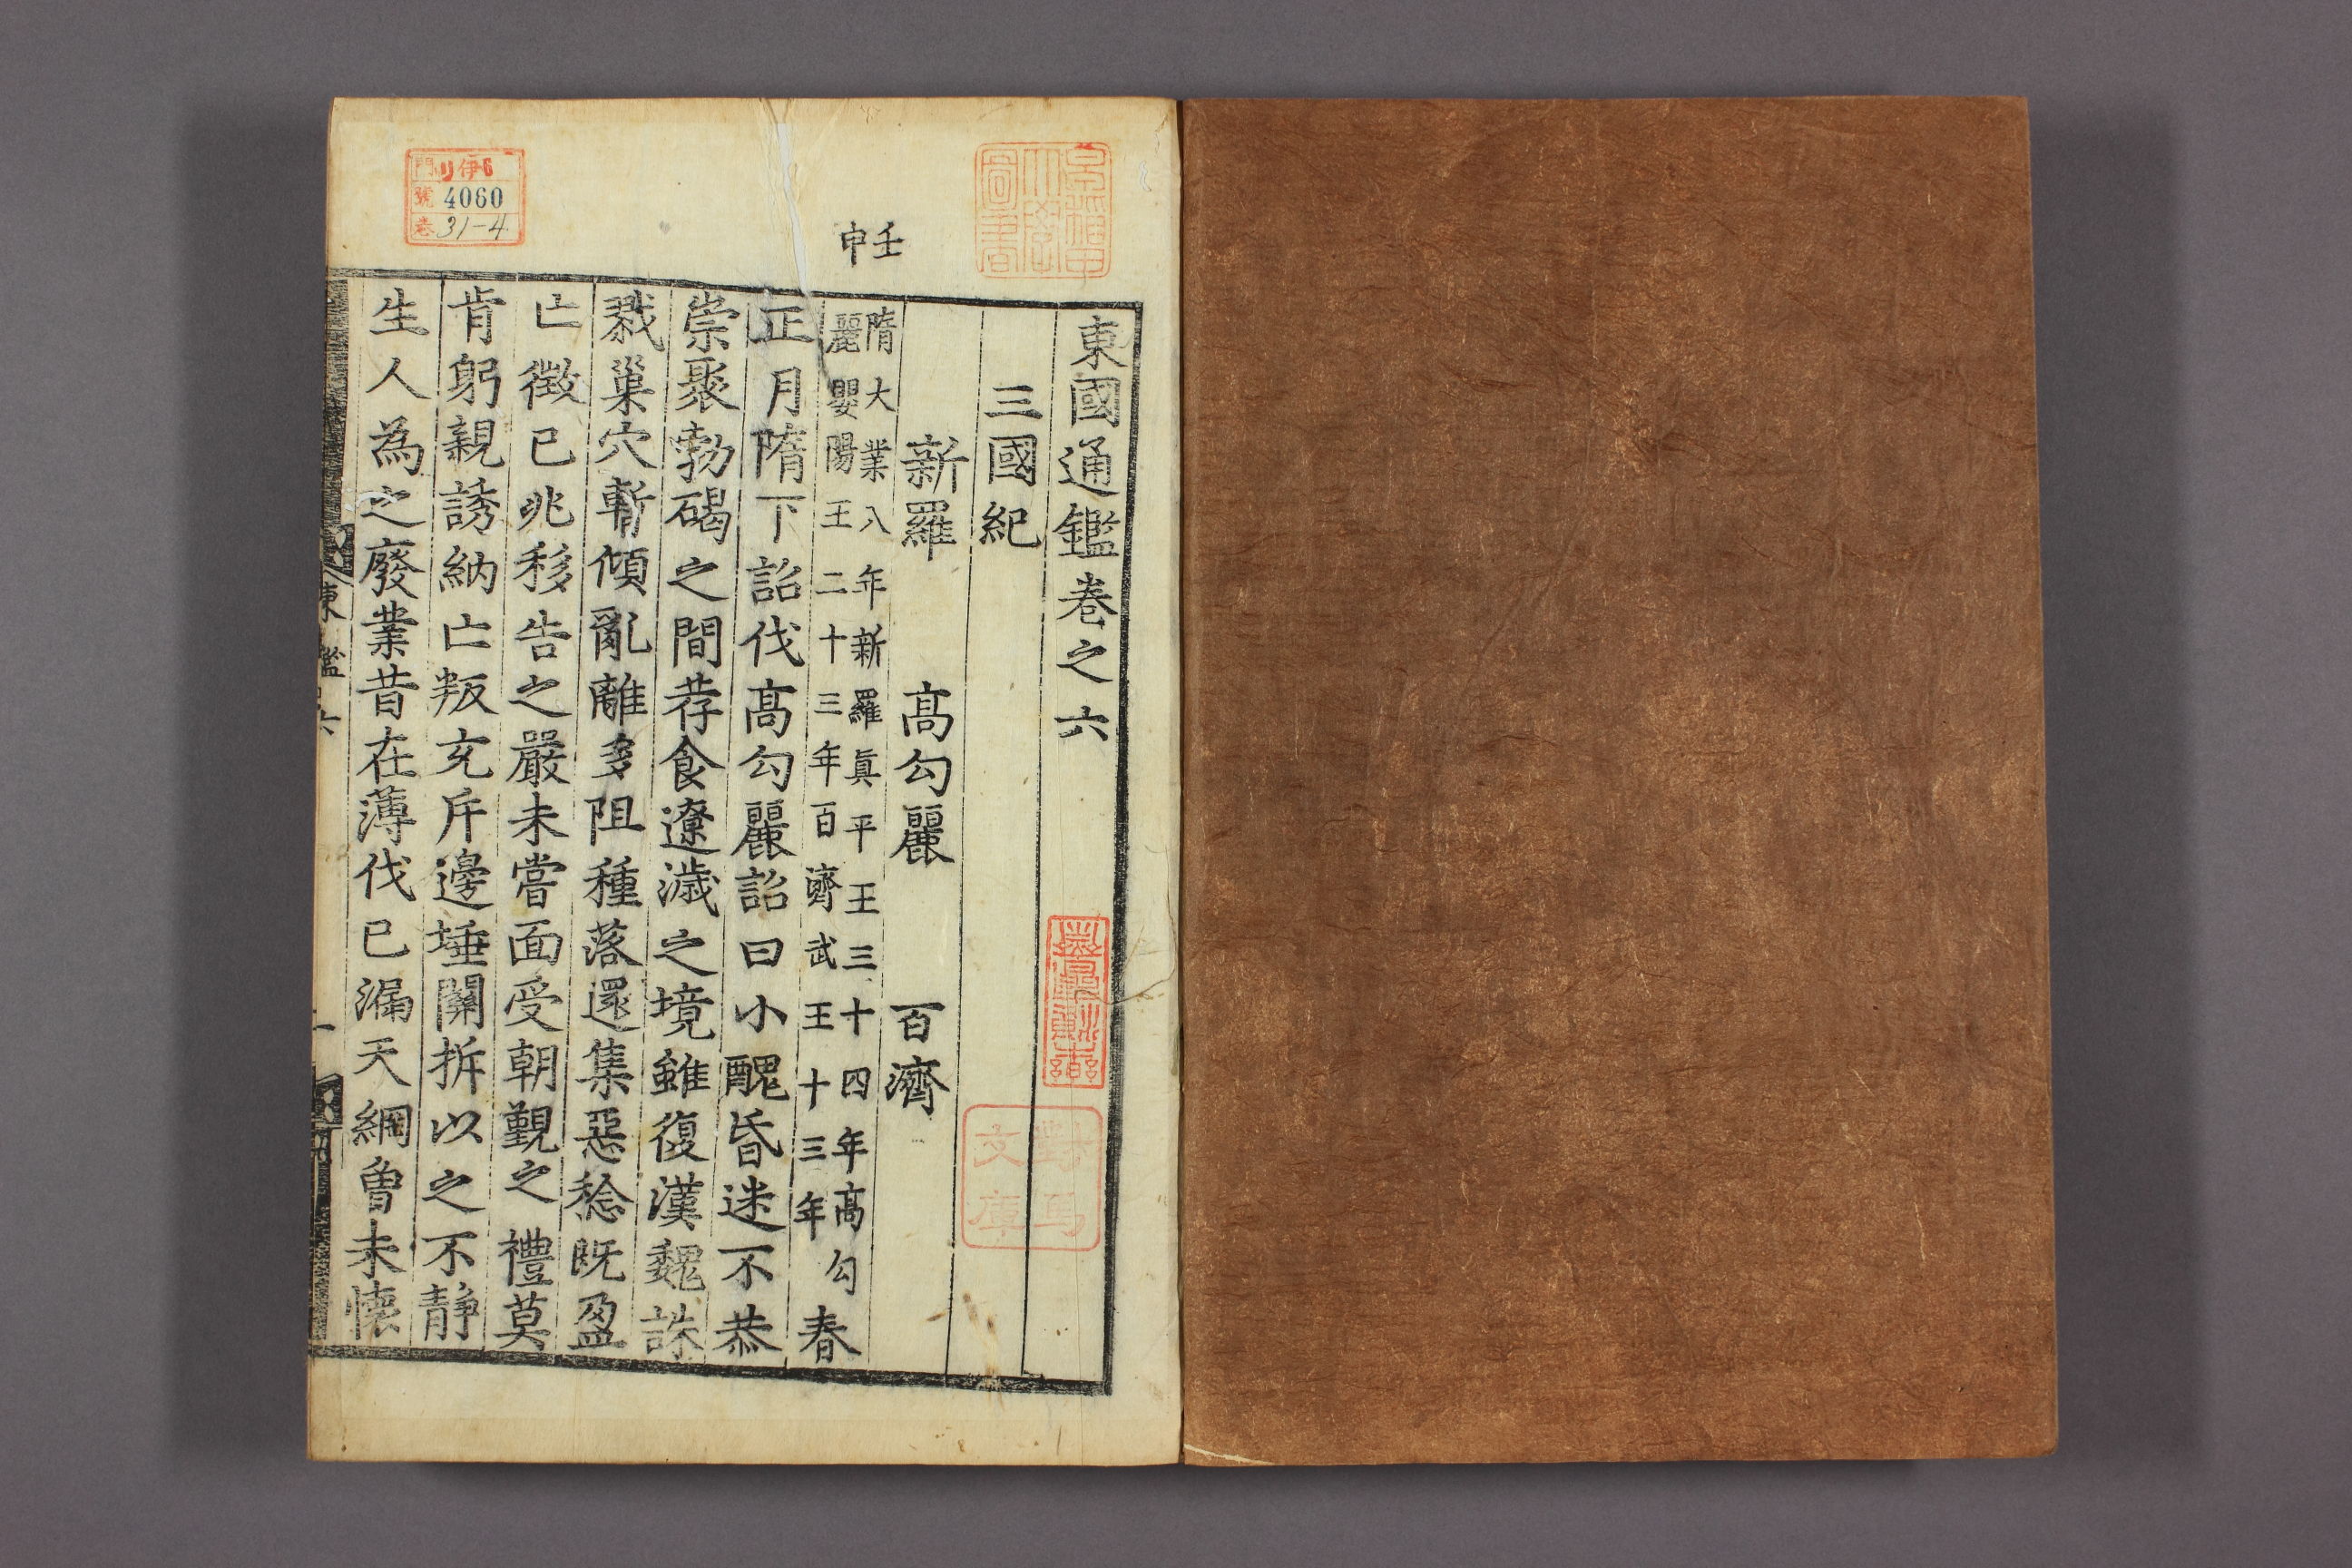 東國通鑑卷之六
三國紀
新羅 高勾麗 百濟
壬申
隋大業八年新羅眞平王三十四年高勾
麗嬰陽王二十三年百濟武王十三年
春
正月隋下詔伐高勾麗詔曰小醜昏迷不恭
崇聚勃碣之間荐食遼濊之境雖復漢魏誅
戮巢穴暫傾亂離多阻種落還集惡稔既盈
亡徵已兆移告之嚴未嘗面受朝覲之禮莫
肯躬親誘納亡叛充斥邊埵關拆以之不静
生人為之廢業昔在薄伐已漏天網曾未懷
門 リ伊6
號 4060
卷 31-4
對馬
文庫